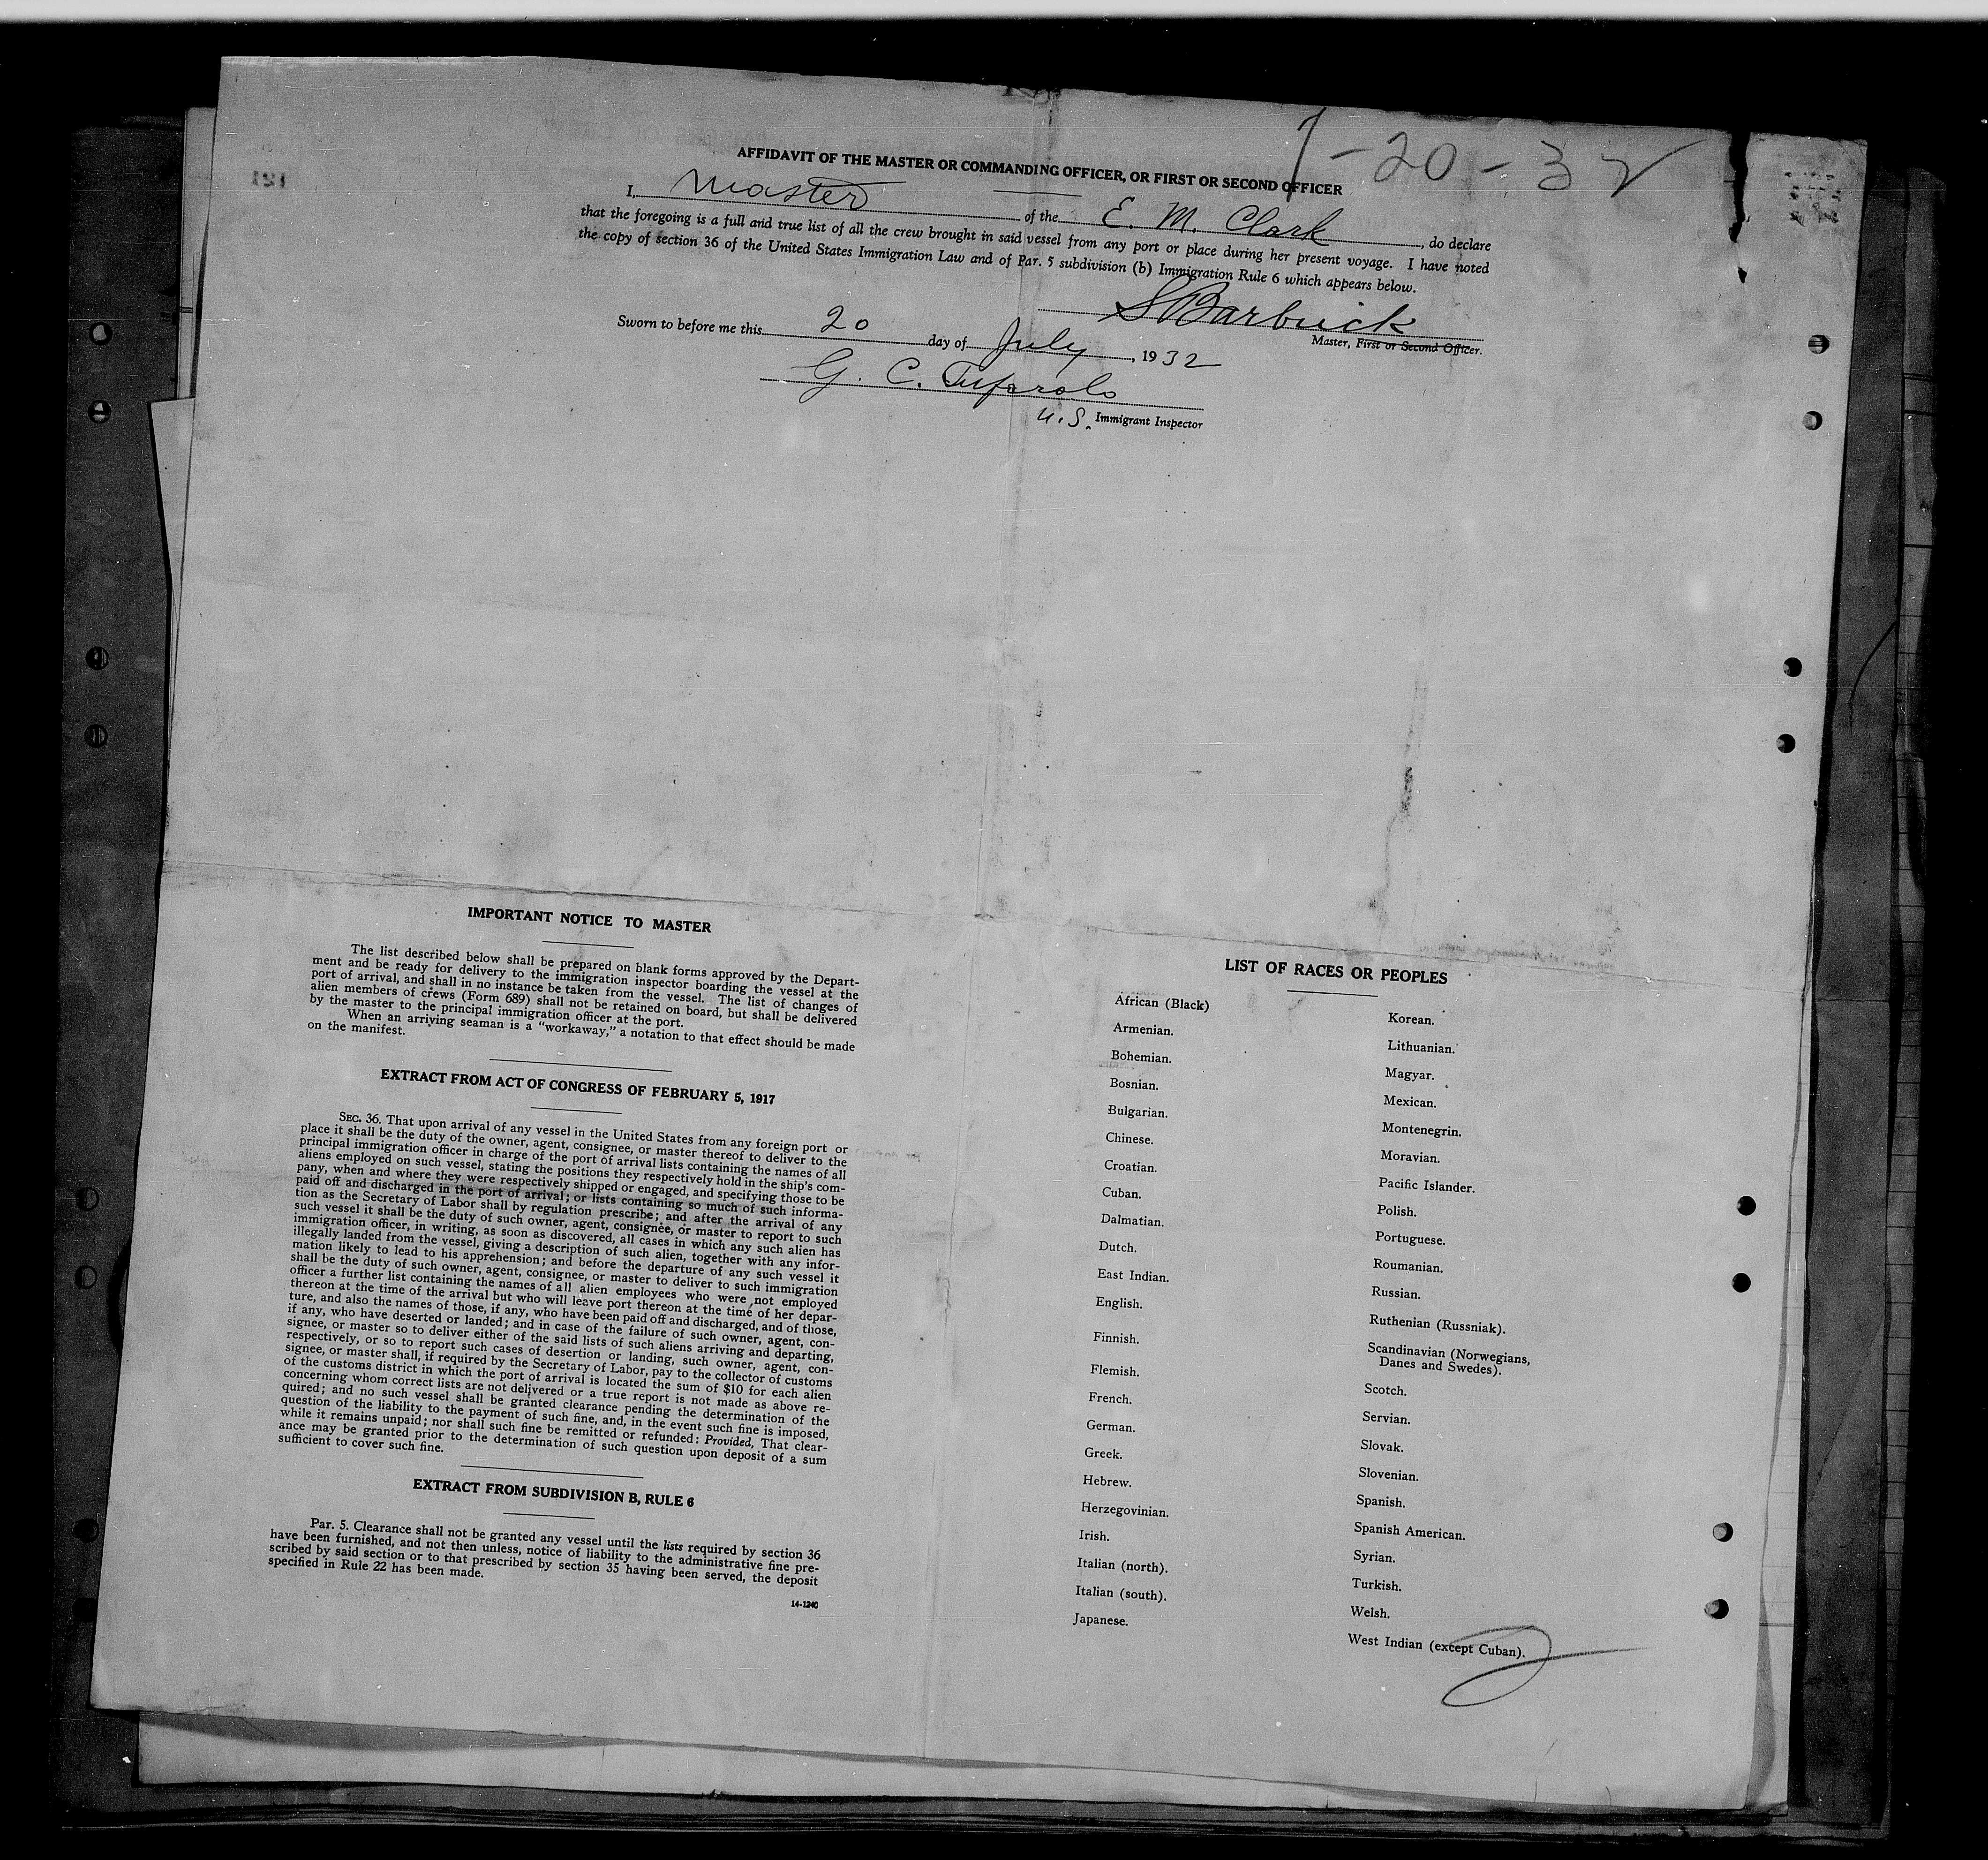 7-20-32
AFFIDAVIT OF THE MASTER OR COMMANDING OFFICER, OR FIRST OR SECOND OFFICER
I, Master of the E. M. Clark, do declare
that the foregoing is a full and true list of all the crew brought in said vessel from any port or place during her present voyage. I have noted
the copy of section 36 of the United States Immigration Law and of Par. 5 subdivision (b) Immigration Rule 6 which appears below.
S Barbuick
Master, First or Second Officer.
Sworn to before me this 20 day of July, 1932
G. C.
U.S. Immigrant Inspector
IMPORTANT NOTICE TO MASTER
The list described below shall be prepared on blank forms approved by the Depart-
ment and be ready for delivery to the immigration inspector boarding the vessel at the
port of arrival, and shall in no instance be taken from the vessel. The list of changes of
alien members of crews (Form 689) shall not be retained on board, but shall be delivered
by the master to the principal immigration officer at the port.
When an arriving seaman is a "workaway," a notation to that effect should be made
on the manifest.
EXTRACT FROM ACT OF CONGRESS OF FEBRUARY 5, 1917
SEC. 36. That upon arrival of any vessel in the United States from any foreign port or
place it shall be the duty of the owner, agent, consignee, or master thereof to deliver to the
principal immigration officer in charge of the port of arrival lists containing the names of all
aliens employed on such vessel, stating the positions they respectively hold in the ship's com-
pany, when and where they were respectively shipped or engaged, and specifying those to be
paid off and discharged in the port of arrival; or lists containing so much of such informa-
tion as the Secretary of Labor shall by regulation prescribe; and after the arrival of any
such vessel it shall be the duty of such owner, agent, consignee, or master to report to such
immigration officer, in writing, as soon as discovered, all cases in which any such alien has
illegally landed from the vessel, giving a description of such alien, together with any infor-
mation likely to lead to his apprehension; and before the departure of any such vessel it
shall be the duty of such owner, agent, consignee, or master to deliver to such immigration
officer a further list containing the names of all alien employees who were not employed
thereon at the time of the arrival but who will leave port thereon at the time of her depar-
ture, and also the names of those, if any, who have been paid off and discharged, and of those,
if any, who have deserted or landed; and in case of the failure of such owner, agent, con-
signee, or master so to deliver either of the said lists of such aliens arriving and departing,
respectively, or so to report such cases of desertion or landing, such owner, agent, con-
signee, or master shall, if required by the Secretary of Labor, pay to the collector of customs
of the customs district in which the port of arrival is located the sum of $10 for each alien
concerning whom correct lists are not delivered or a true report is not made as above re-
quired; and no such vessel shall be granted clearance pending the determination of the
question of the liability to the payment of such fine, and, in the event such fine is imposed,
while it remains unpaid; nor shall such fine be remitted or refunded: Provided, That clear-
ance may be granted prior to the determination of such question upon deposit of a sum
sufficient to cover such fine.
EXTRACT FROM SUBDIVISION B, RULE 6
Par. 5. Clearance shall not be granted any vessel until the lists required by section 36
have been furnished, and not then unless, notice of liability to the administrative fine pre-
scribed by said section or to that prescribed by section 35 having been served, the deposit
specified in Rule 22 has been made.
14-1240
LIST OF RACES OR PEOPLES
African (Black)
Armenian.
Bohemian.
Bosnian.
Bulgarian.
Chinese.
Croatian.
Cuban.
Dalmatian.
Dutch.
East Indian.
English.
Finnish.
Flemish.
French.
German.
Greek.
Hebrew.
Herzegovinian.
Irish.
Italian (north).
Italian (south).
Japanese.
Korean.
Lithuanian.
Magyar.
Mexican.
Montenegrin.
Moravian.
Pacific Islander.
Polish.
Portuguese.
Roumanian.
Russian.
Ruthenian (Russniak).
Scandinavian (Norwegians,
Danes and Swedes).
Scotch.
Servian.
Slovak.
Slovenian.
Spanish.
Spanish American.
Syrian.
Turkish.
Welsh.
West Indian (except Cuban).